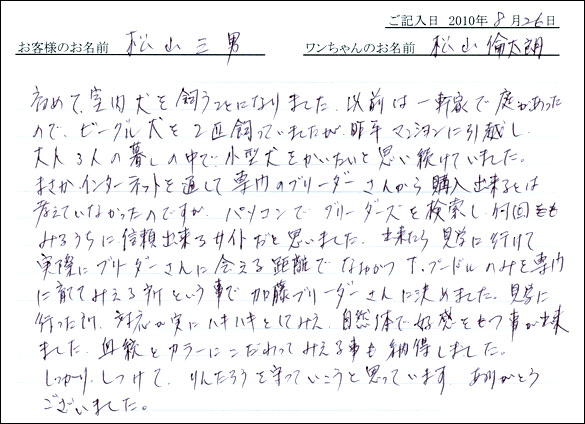 ご記入日 2010年 8月26日
お客様のお名前 松山三男 ワンちゃんのお名前 松山倫太朗
初めて、室内犬を飼うことになりました。以前は一軒家で庭があった
ので、ビーグル犬を2匹飼っていましたが、昨年マンションに引越し、
大人3人の暮しの中で小型犬をかいたいと思い続けていました。
まさかインターネットを通して専門のブリーダーさんから購入出来るとは
考えていなかったのですが、パソコンでブリーダーズを検索し、何回も
みるうちに信頼出来るサイトだと思いました。出来たら見学に行けて
実際にブリーダーさんに会える距離でなおかつT.プードルのみを専門
に育てみえる所という事で加藤ブリーダーさんに決めました。見学に
行った所、対応が実にハキハキとしてみえ、自然体で好感をもつ事が出来
ました。血統とカラーにこだわってみえる事も納得しました。
しっかり、しつけて、りんたろうを守っていこうと思っています。ありがとう
ございました。